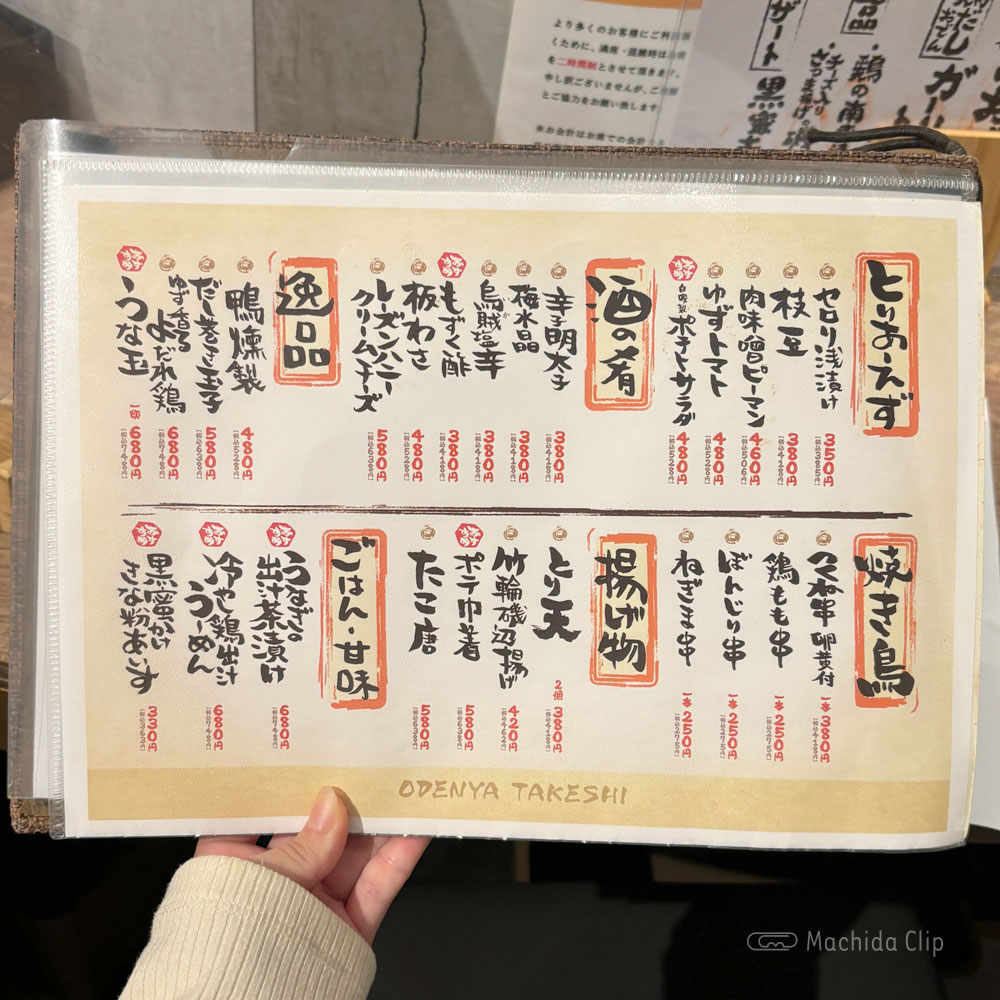 より多くのお客様にご利用頂
くために、満席・混雑時は
を二時間制とさせて頂きます。
申し訳ございませんが、ご理解
とご協力をお願い致します
※お会計はお席での会計
デザート
黒蜜
鶏の南
チーズ入り
さつま揚げ
だし
おでん
とりあえず
セロリ浅漬け
350円
(税込385円)
枝豆
380円
(税込418円)
肉味噌ピーマン
460円
(税込506円)
ゆずトマト
480円
(税込528円)
自家製ポテトサラダ
480円
(税込528円)
酒の肴
辛子明太子
380円
(税込418円)
梅水晶
380円
(税込418円)
烏賊塩辛
380円
(税込418円)
もずく酢
380円
(税込418円)
板わさ
480円
(税込528円)
レーズンハニー
クリームチーズ
580円
(税込638円)
逸品
鴨燻製
480円
(税込528円)
だし巻き玉子
580円
(税込638円)
ゆず香る
よだれ鶏
680円
(税込748円)
うな玉
680円
(税込748円)
焼き鳥
つくね串 卵黄付
一本 380円
(税込418円)
鶏もも串
一本 250円
(税込275円)
ぼんじり串
一本 250円
(税込275円)
ねぎま串
一本 250円
(税込275円)
揚げ物
とり天
2個 380円
(税込418円)
竹輪磯辺揚げ
420円
(税込462円)
ポテ巾着
580円
(税込638円)
たこ唐
580円
(税込638円)
ごはん・甘味
うなぎの
出汁茶漬け
680円
(税込748円)
冷やし鶏出汁
うーめん
680円
(税込748円)
黒蜜かけ
きな粉あいす
330円
(税込363円)
ODENYA TAKESHI
Machida Clip